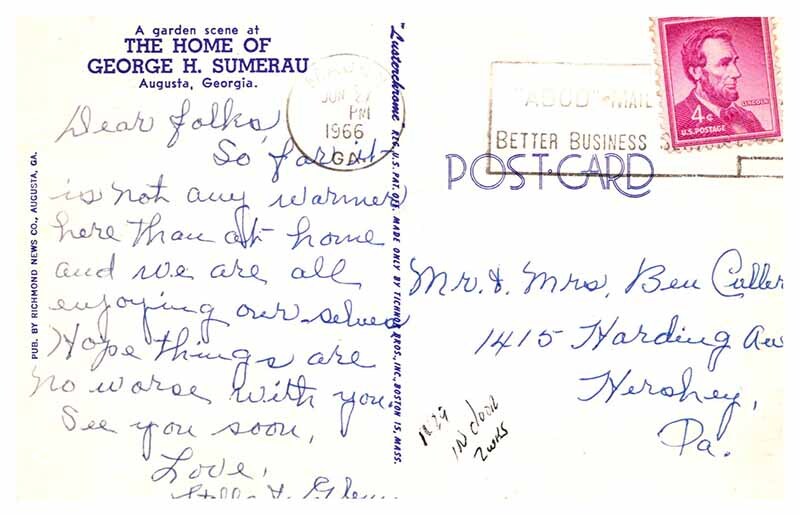 A garden scene at
THE HOME OF
GEORGE H. SUMERAU
Augusta, Georgia.
Dear folks,
So far it
is not any warmer
here than at home
and we are all
enjoying our selves
Hope things are
no worse with you.
See you soon,
Love,
PUB. BY RICHMOND NEWS CO., AUGUSTA, GA.
"Lusterchrome" REG. U.S. PAT. OFF. MADE ONLY BY TICHNOR BROS., INC., BOSTON 15, MASS.
JUN 27
PM
1966
GA
"ABCD" MAIL
BETTER BUSINESS
LINCOLN
4¢
U.S. POSTAGE
POST CARD
Mr. & Mrs. Ben Culler
1415 Harding Av
Hershey,
Pa.
IN door
2 wks